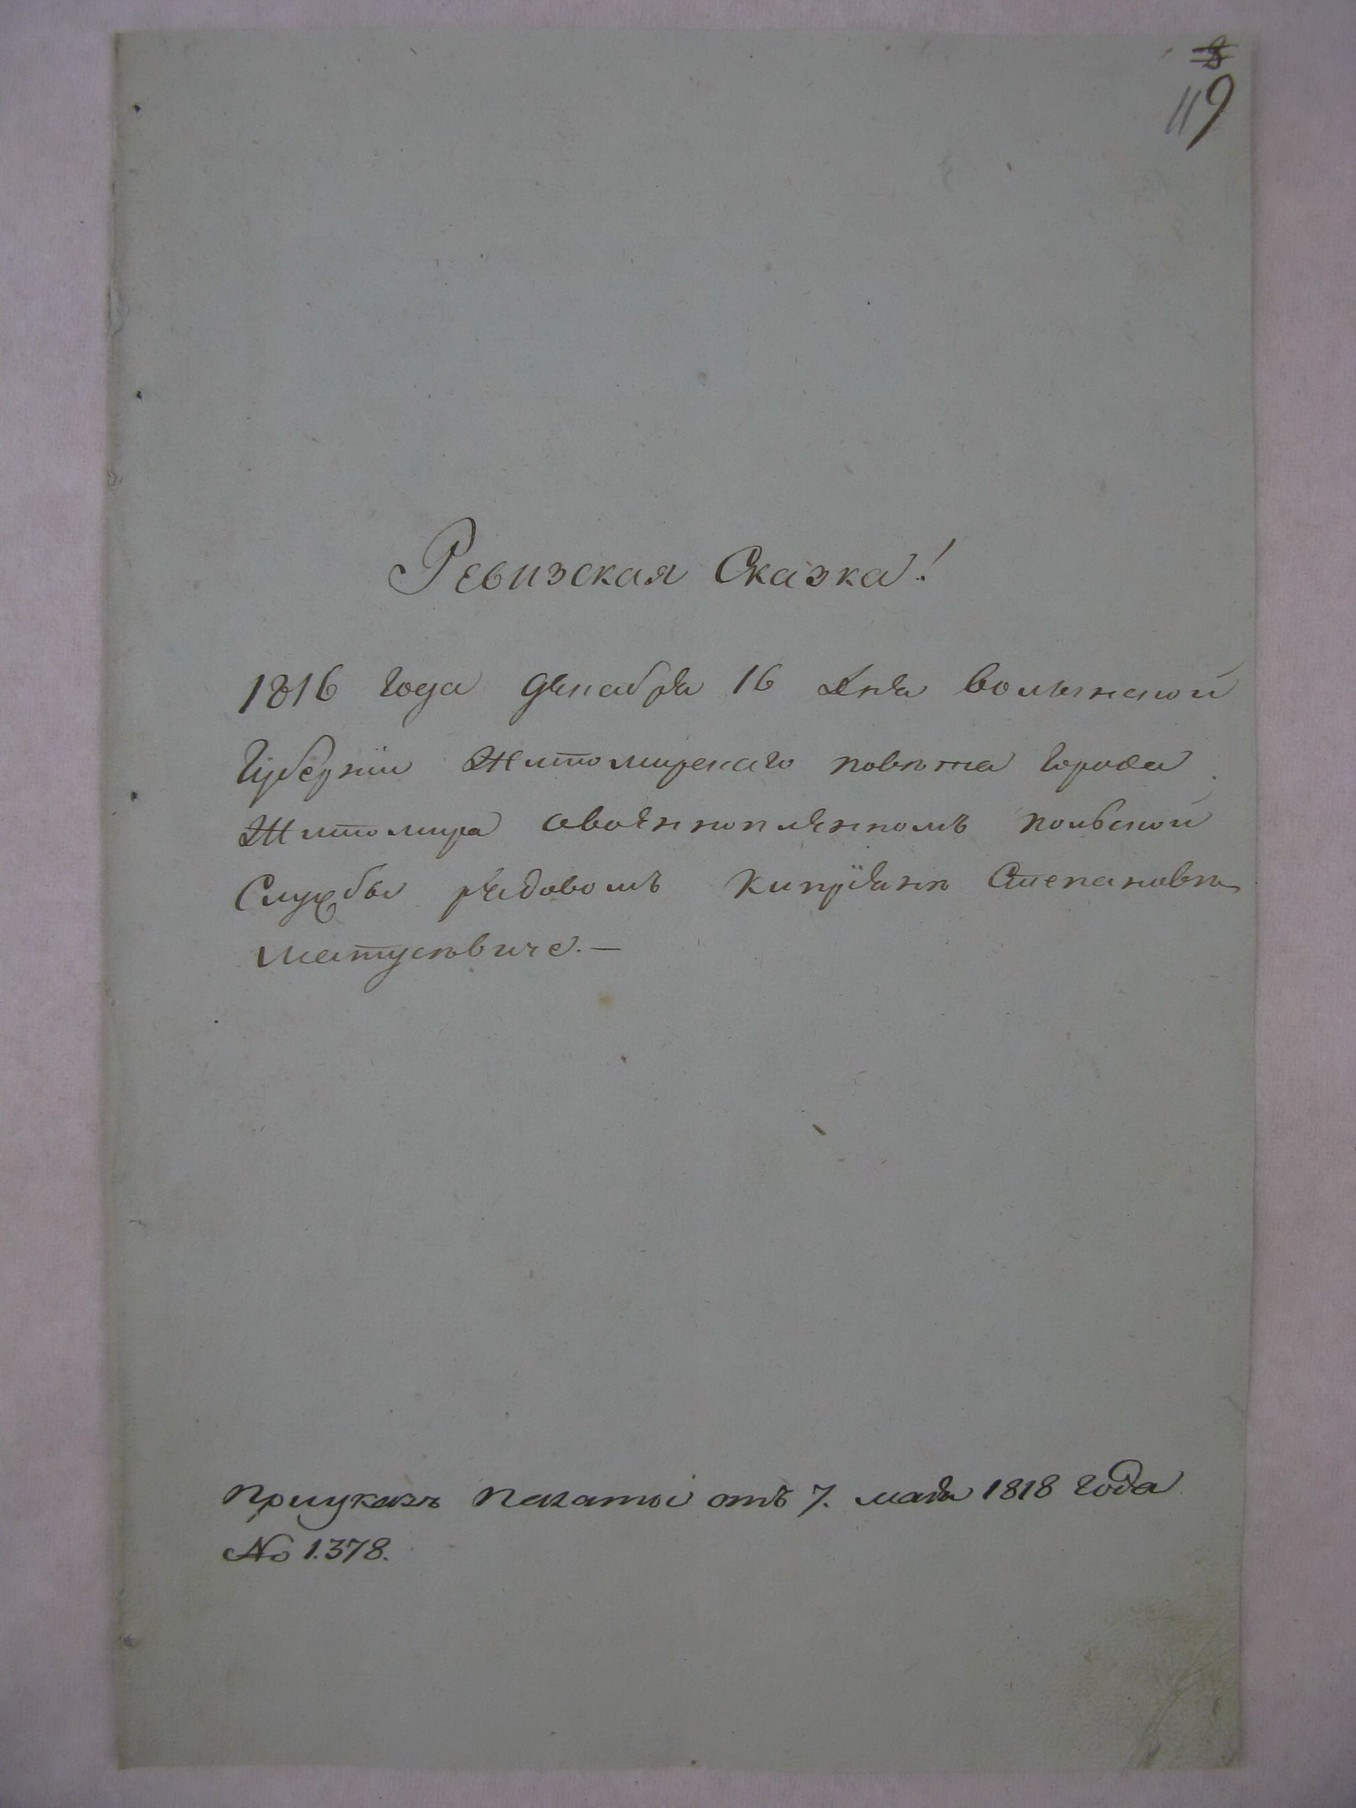 119
Ревизская Сказка!
1816 года декабря 16 дня Волынской
Губернiи Житомирскаго повѣта Города
Житомира овоеннопленномъ польской
Службы рядовомъ Кипрiянѣ Степановѣ
Матусѣвиче.—
приуказѣ палаты отъ 7. мая 1818 года
№ 1.378.